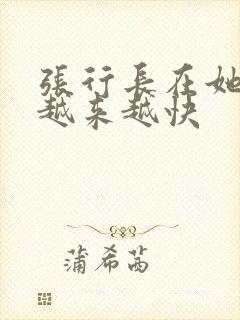 張行長在她
越来越快
蒲希茜